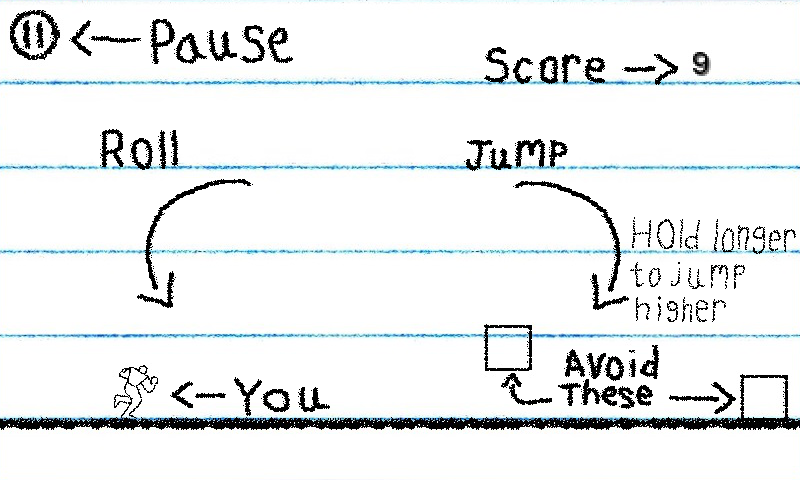 Pause
Score 9
Roll
Jump
Hold longer
to jump
higher
You
Avoid
These